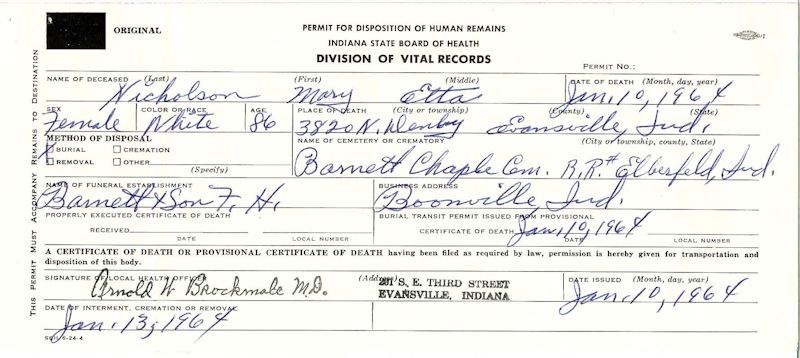 ORIGINAL
PERMIT FOR DISPOSITION OF HUMAN REMAINS
INDIANA STATE BOARD OF HEALTH
DIVISION OF VITAL RECORDS
PERMIT NO.:
THIS PERMIT MUST ACCOMPANY REMAINS TO DESTINATION
NAME OF DECEASED (Last) (First) (Middle) DATE OF DEATH (Month, day, year)
Nicholson Mary Etta Jan. 10, 1964
SEX COLOR OR RACE AGE PLACE OF DEATH (City or township) (County) (State)
Female White 86 3820 N. Evansville, Ind.
METHOD OF DISPOSAL NAME OF CEMETERY OR CREMATORY (City or township, county, State)
BURIAL CREMATION
REMOVAL OTHER
(Specify)
Barnett Chaple Cem. R.R# Elberfeld, Ind.
NAME OF FUNERAL ESTABLISHMENT BUSINESS ADDRESS
Barnett & Son F. H. Boonville, Ind.
PROPERLY EXECUTED CERTIFICATE OF DEATH BURIAL TRANSIT PERMIT ISSUED FROM PROVISIONAL
RECEIVED CERTIFICATE OF DEATH Jan, 10, 1964
DATE LOCAL NUMBER DATE LOCAL NUMBER
A CERTIFICATE OF DEATH OR PROVISIONAL CERTIFICATE OF DEATH having been filed as required by law, permission is hereby given for transportation and
disposition of this body.
SIGNATURE OF LOCAL HEALTH OFFICER (Address) DATE ISSUED (Month, day, year)
Arnold W Brockmole M.D. 201 S. E. THIRD STREET
EVANSVILLE, INDIANA Jan. 10, 1964
DATE OF INTERMENT, CREMATION OR REMOVAL
Jan. 13, 1964